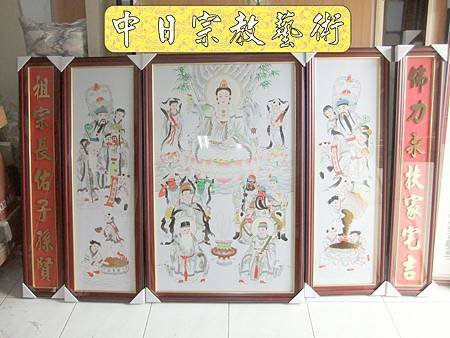 中日宗教藝術
佛力永扶家宅吉
祖宗長佑子孫賢